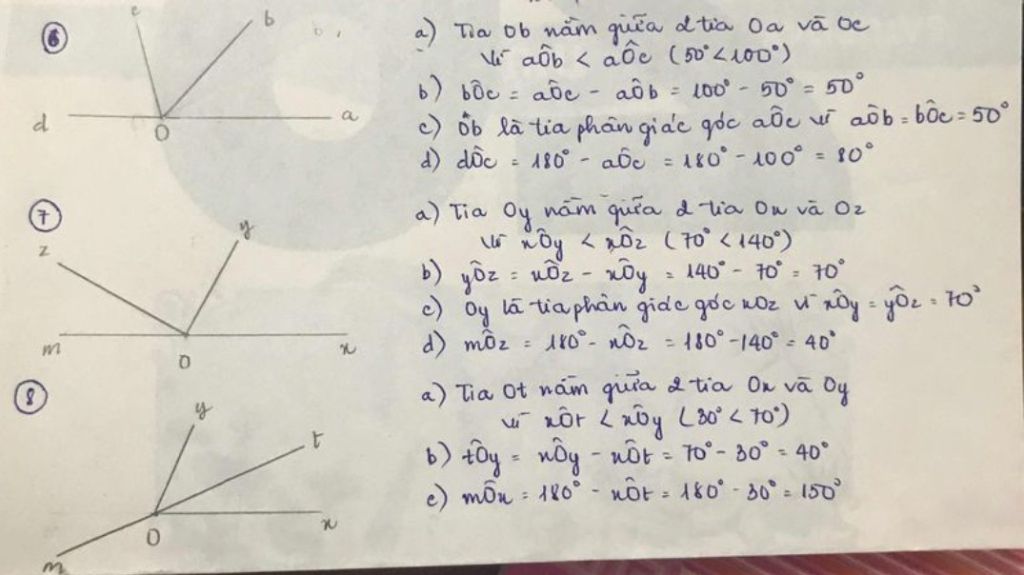 6
c
b
d
O
a
a) Tia Ob nằm giữa 2 tia Oa và Oc
vì aÔb < aÔc (50° < 100°)
b) bÔc = aÔc - aÔb = 100° - 50° = 50°
c) Ob là tia phân giác góc aÔc vì aÔb = bÔc = 50°
d) dÔc = 180° - aÔc = 180° - 100° = 80°
7
z
y
m
O
x
a) Tia Oy nằm giữa 2 tia Ox và Oz
vì xÔy < xÔz (70° < 140°)
b) yÔz = xÔz - xÔy = 140° - 70° = 70°
c) Oy là tia phân giác góc xOz vì xÔy = yÔz = 70°
d) mÔz = 180° - xÔz = 180° - 140° = 40°
8
y
t
O
x
m
a) Tia Ot nằm giữa 2 tia Ox và Oy
vì xÔt < xÔy (30° < 70°)
b) tÔy = xÔy - xÔt = 70° - 30° = 40°
c) mÔx = 180° - xÔt = 180° - 30° = 150°